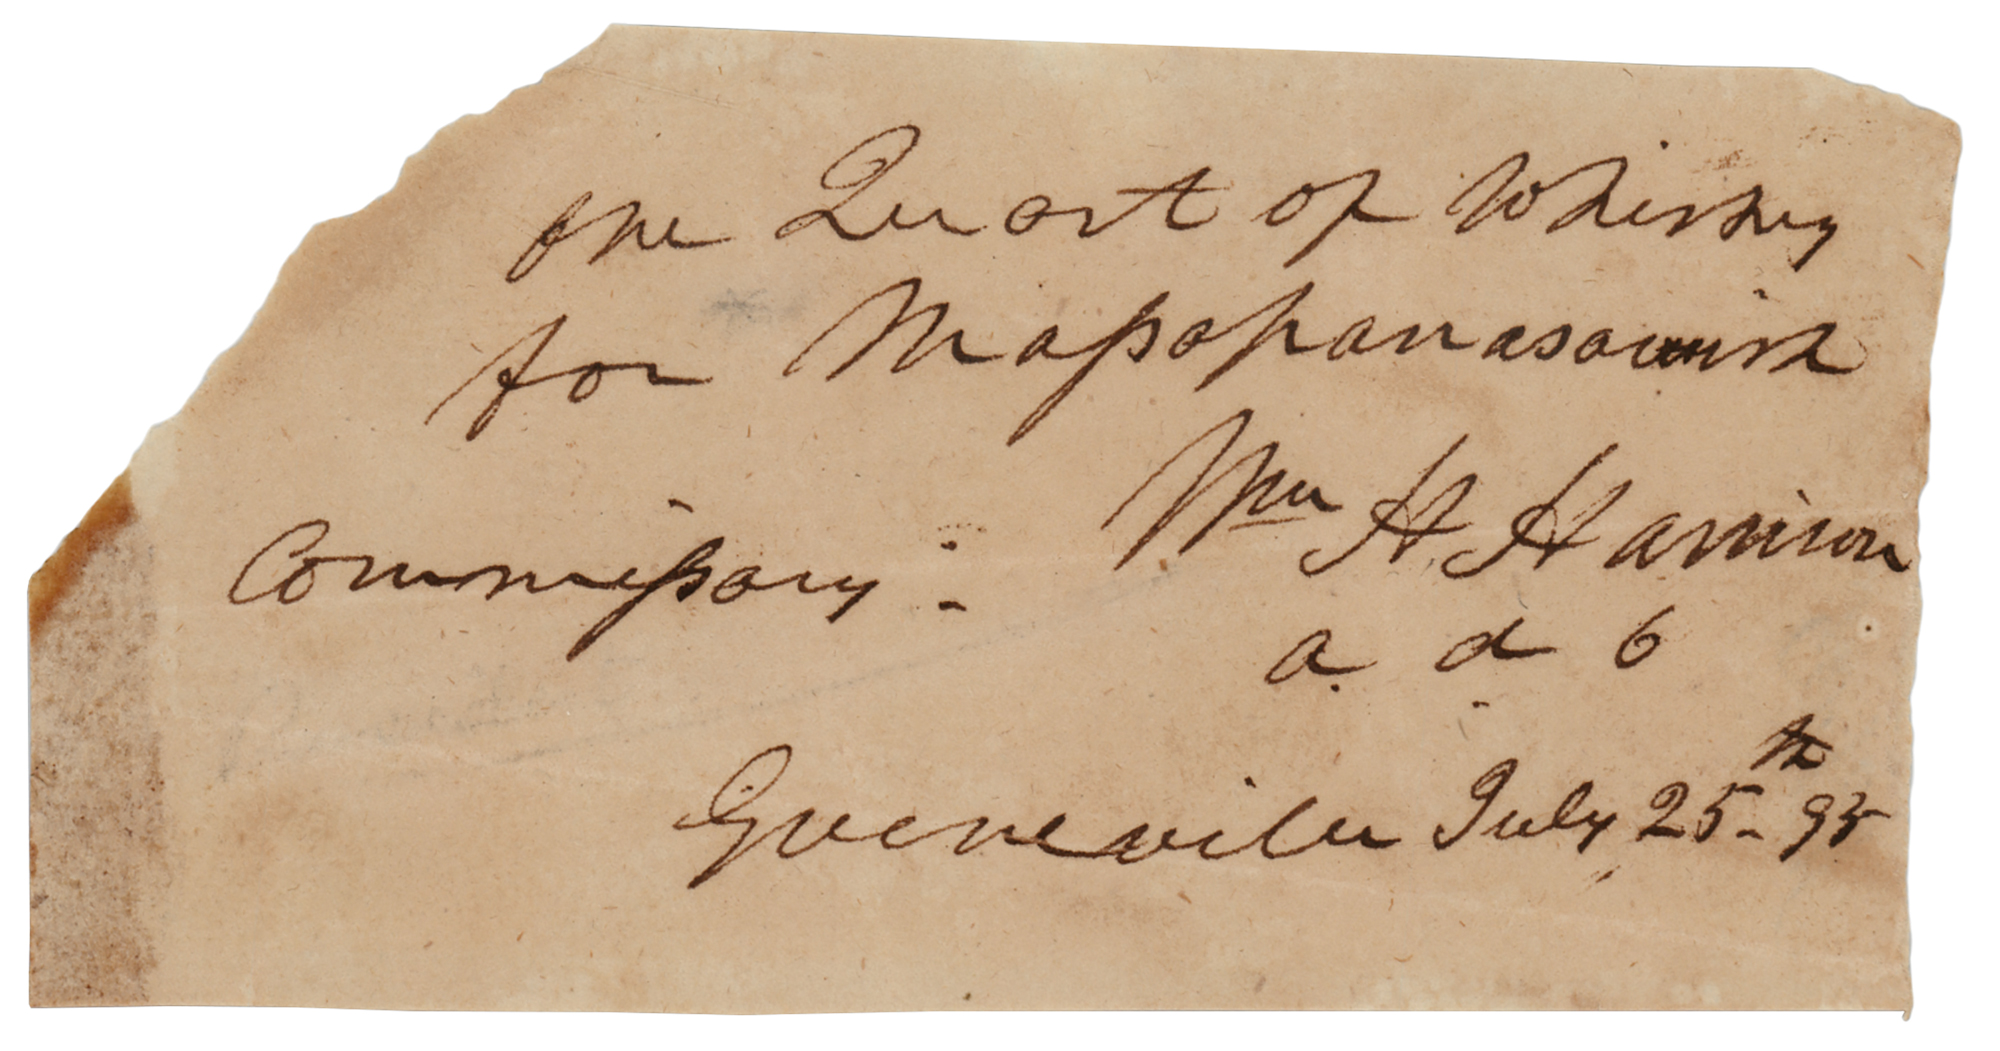 One Quart of Whiskey
for
Wm H Harrison
Commissary :
a. d. 6
Greeneville July 25th 95